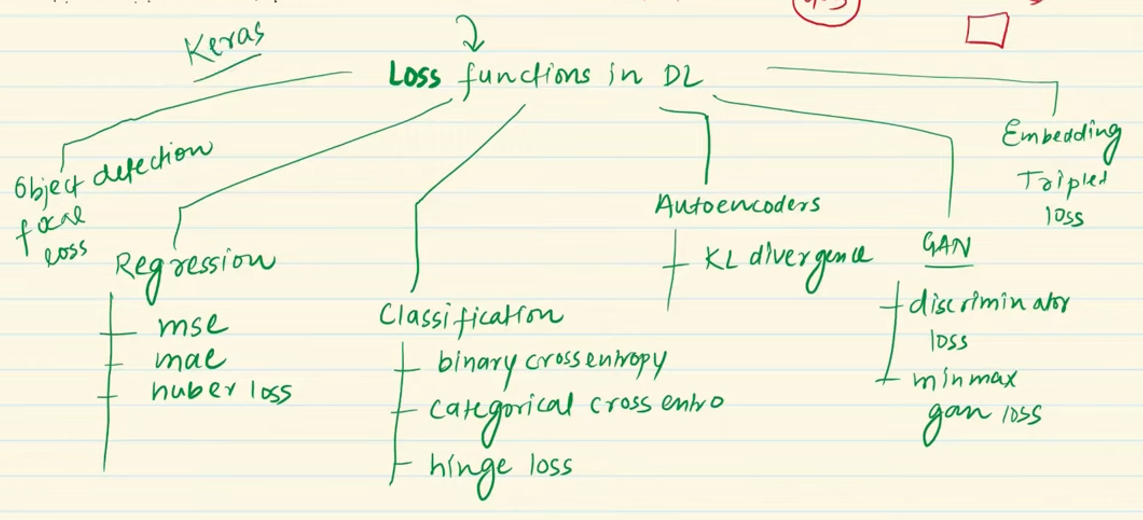 Keras
Loss functions in DL
Object detection
focal
loss
Regression
mse
mae
huber loss
Classification
binary cross entropy
categorical cross entro
hinge loss
Autoencoders
KL divergence
GAN
discriminator
loss
minmax
gan loss
Embedding
Triplet
loss